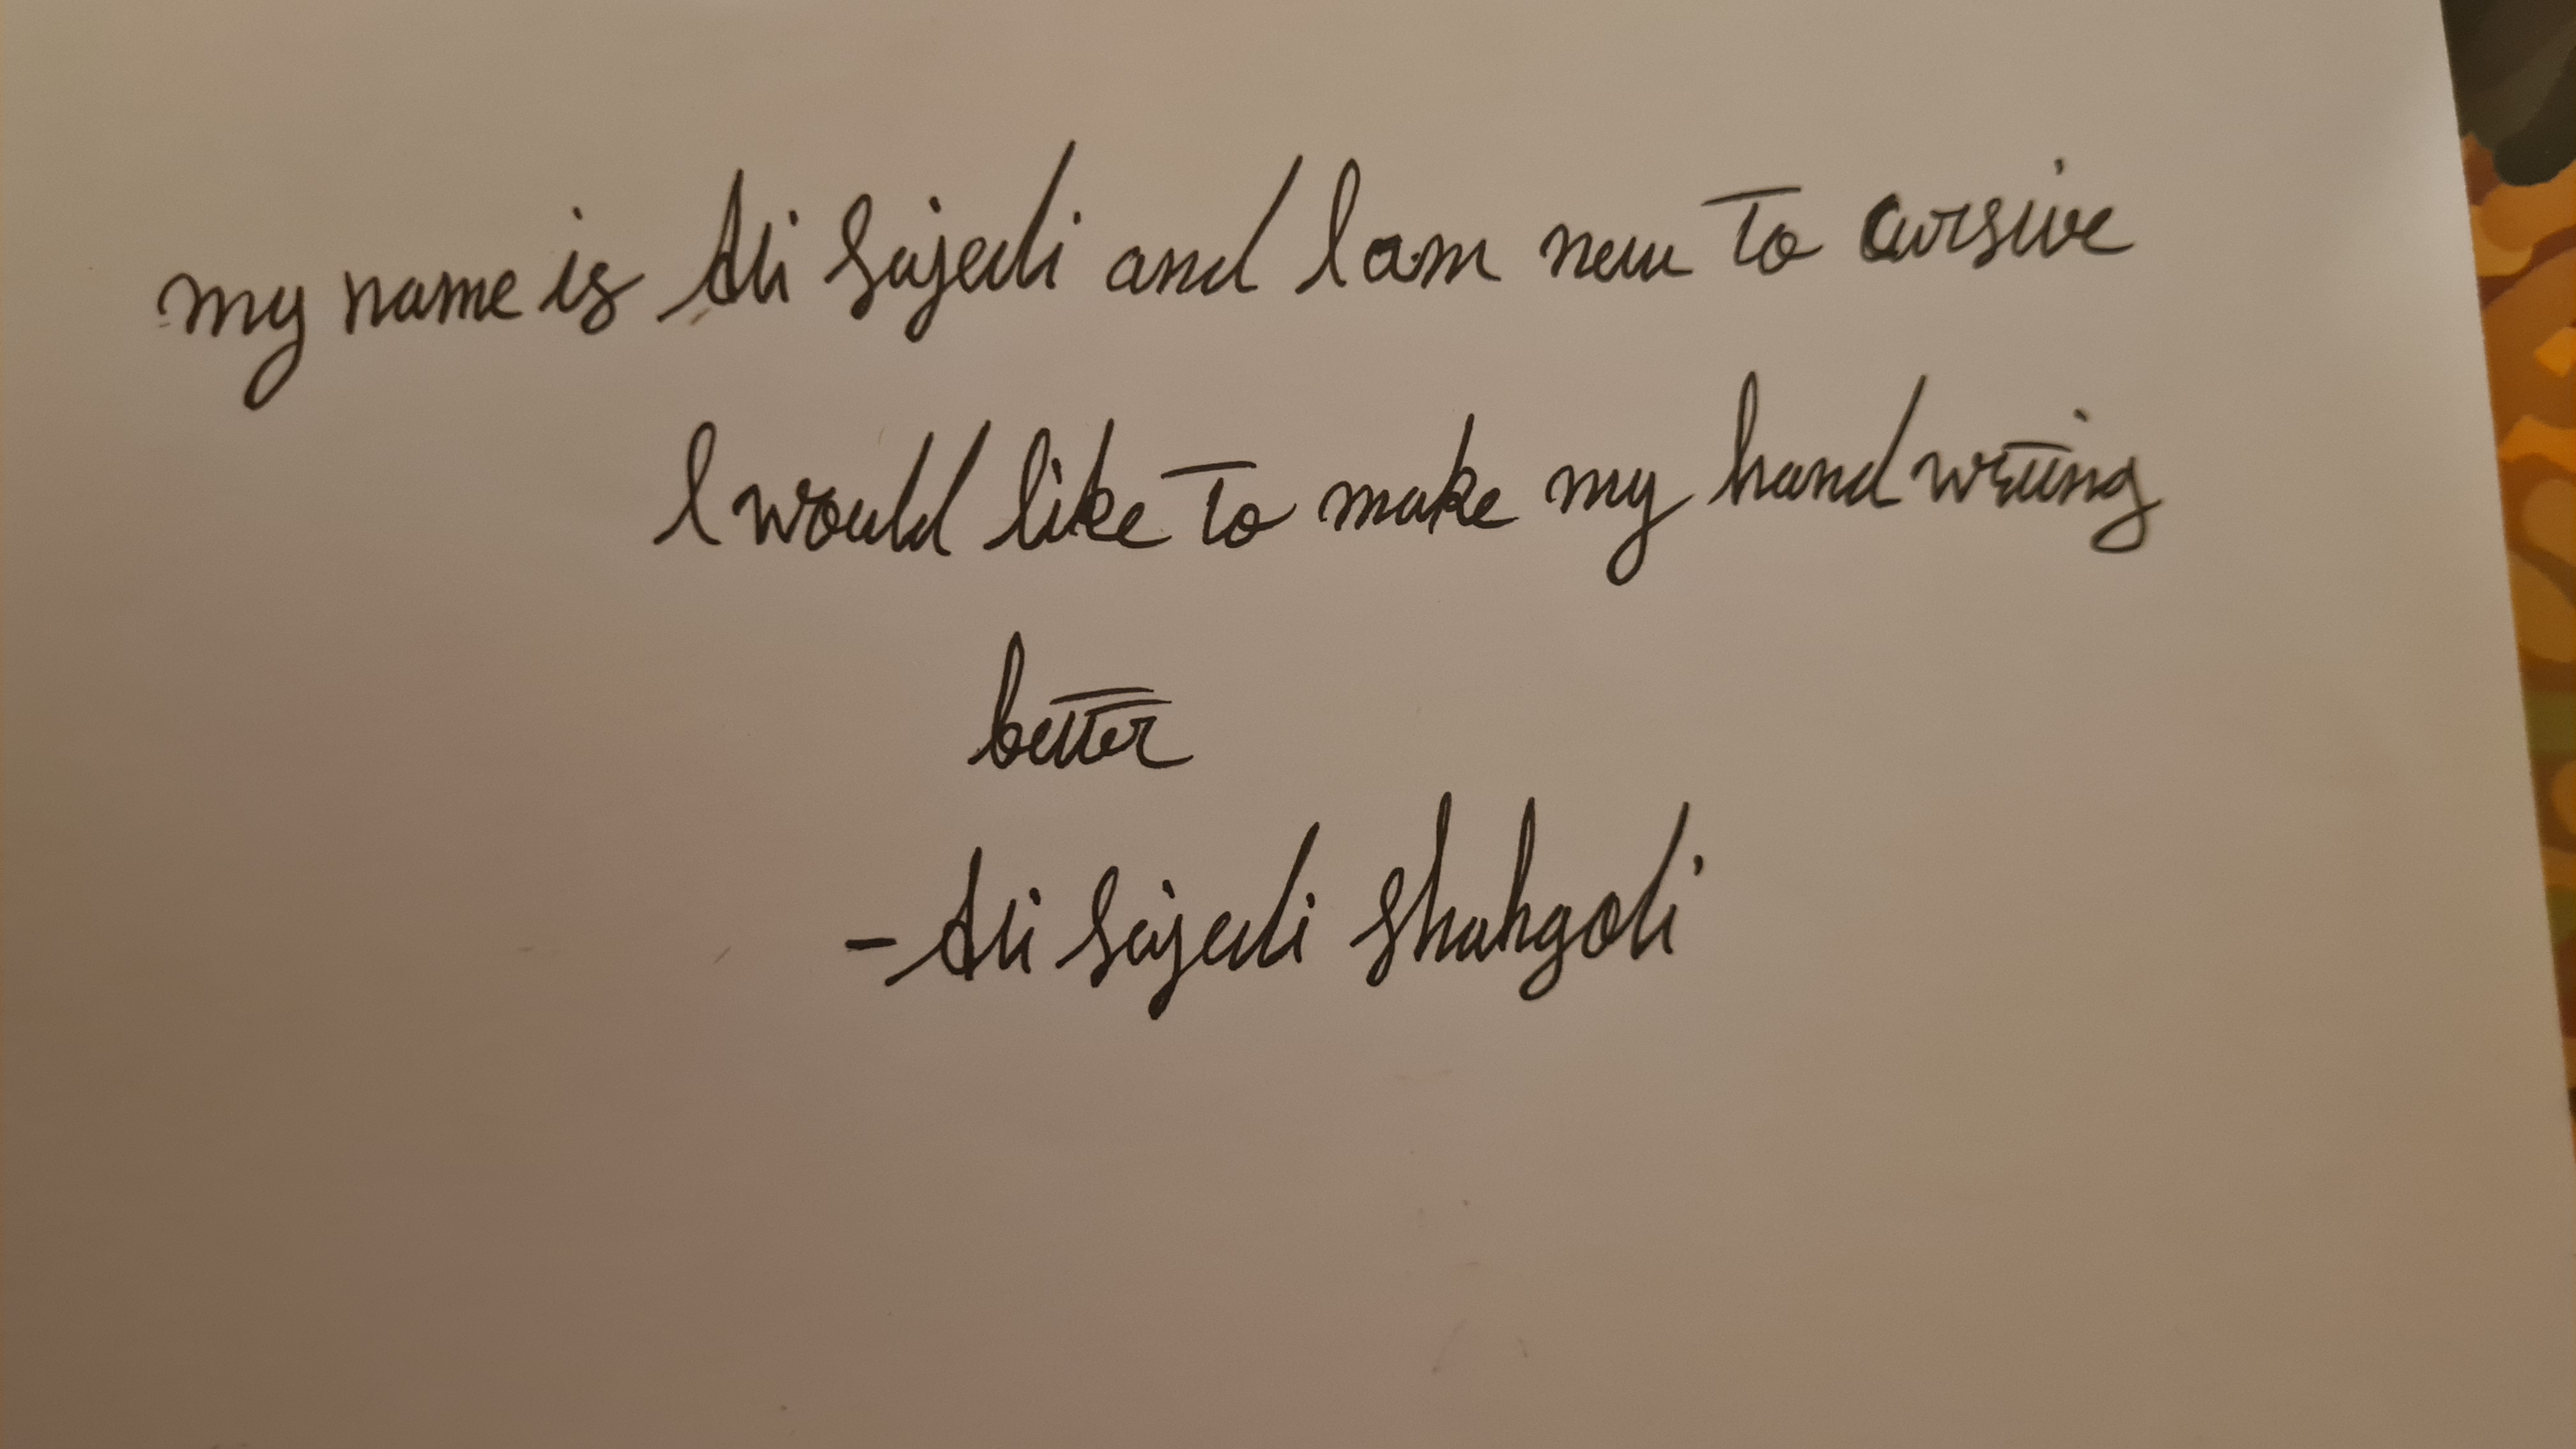 my name is Ali Sajedi and I am new to cursive
I would like to make my hand writing
better
- Ali Sajedi Shahgoli